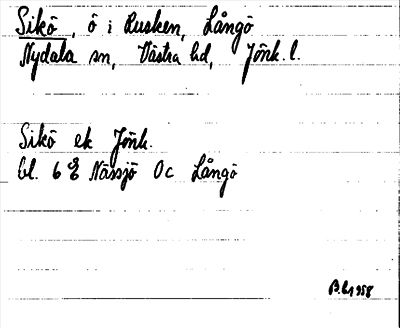 Sikö, ö i Rusken, Långö
Nydala sn, Västra hd, Jönk. l.
Sikö ek Jönk.
bl. 6 E Nässjö Oc Långö